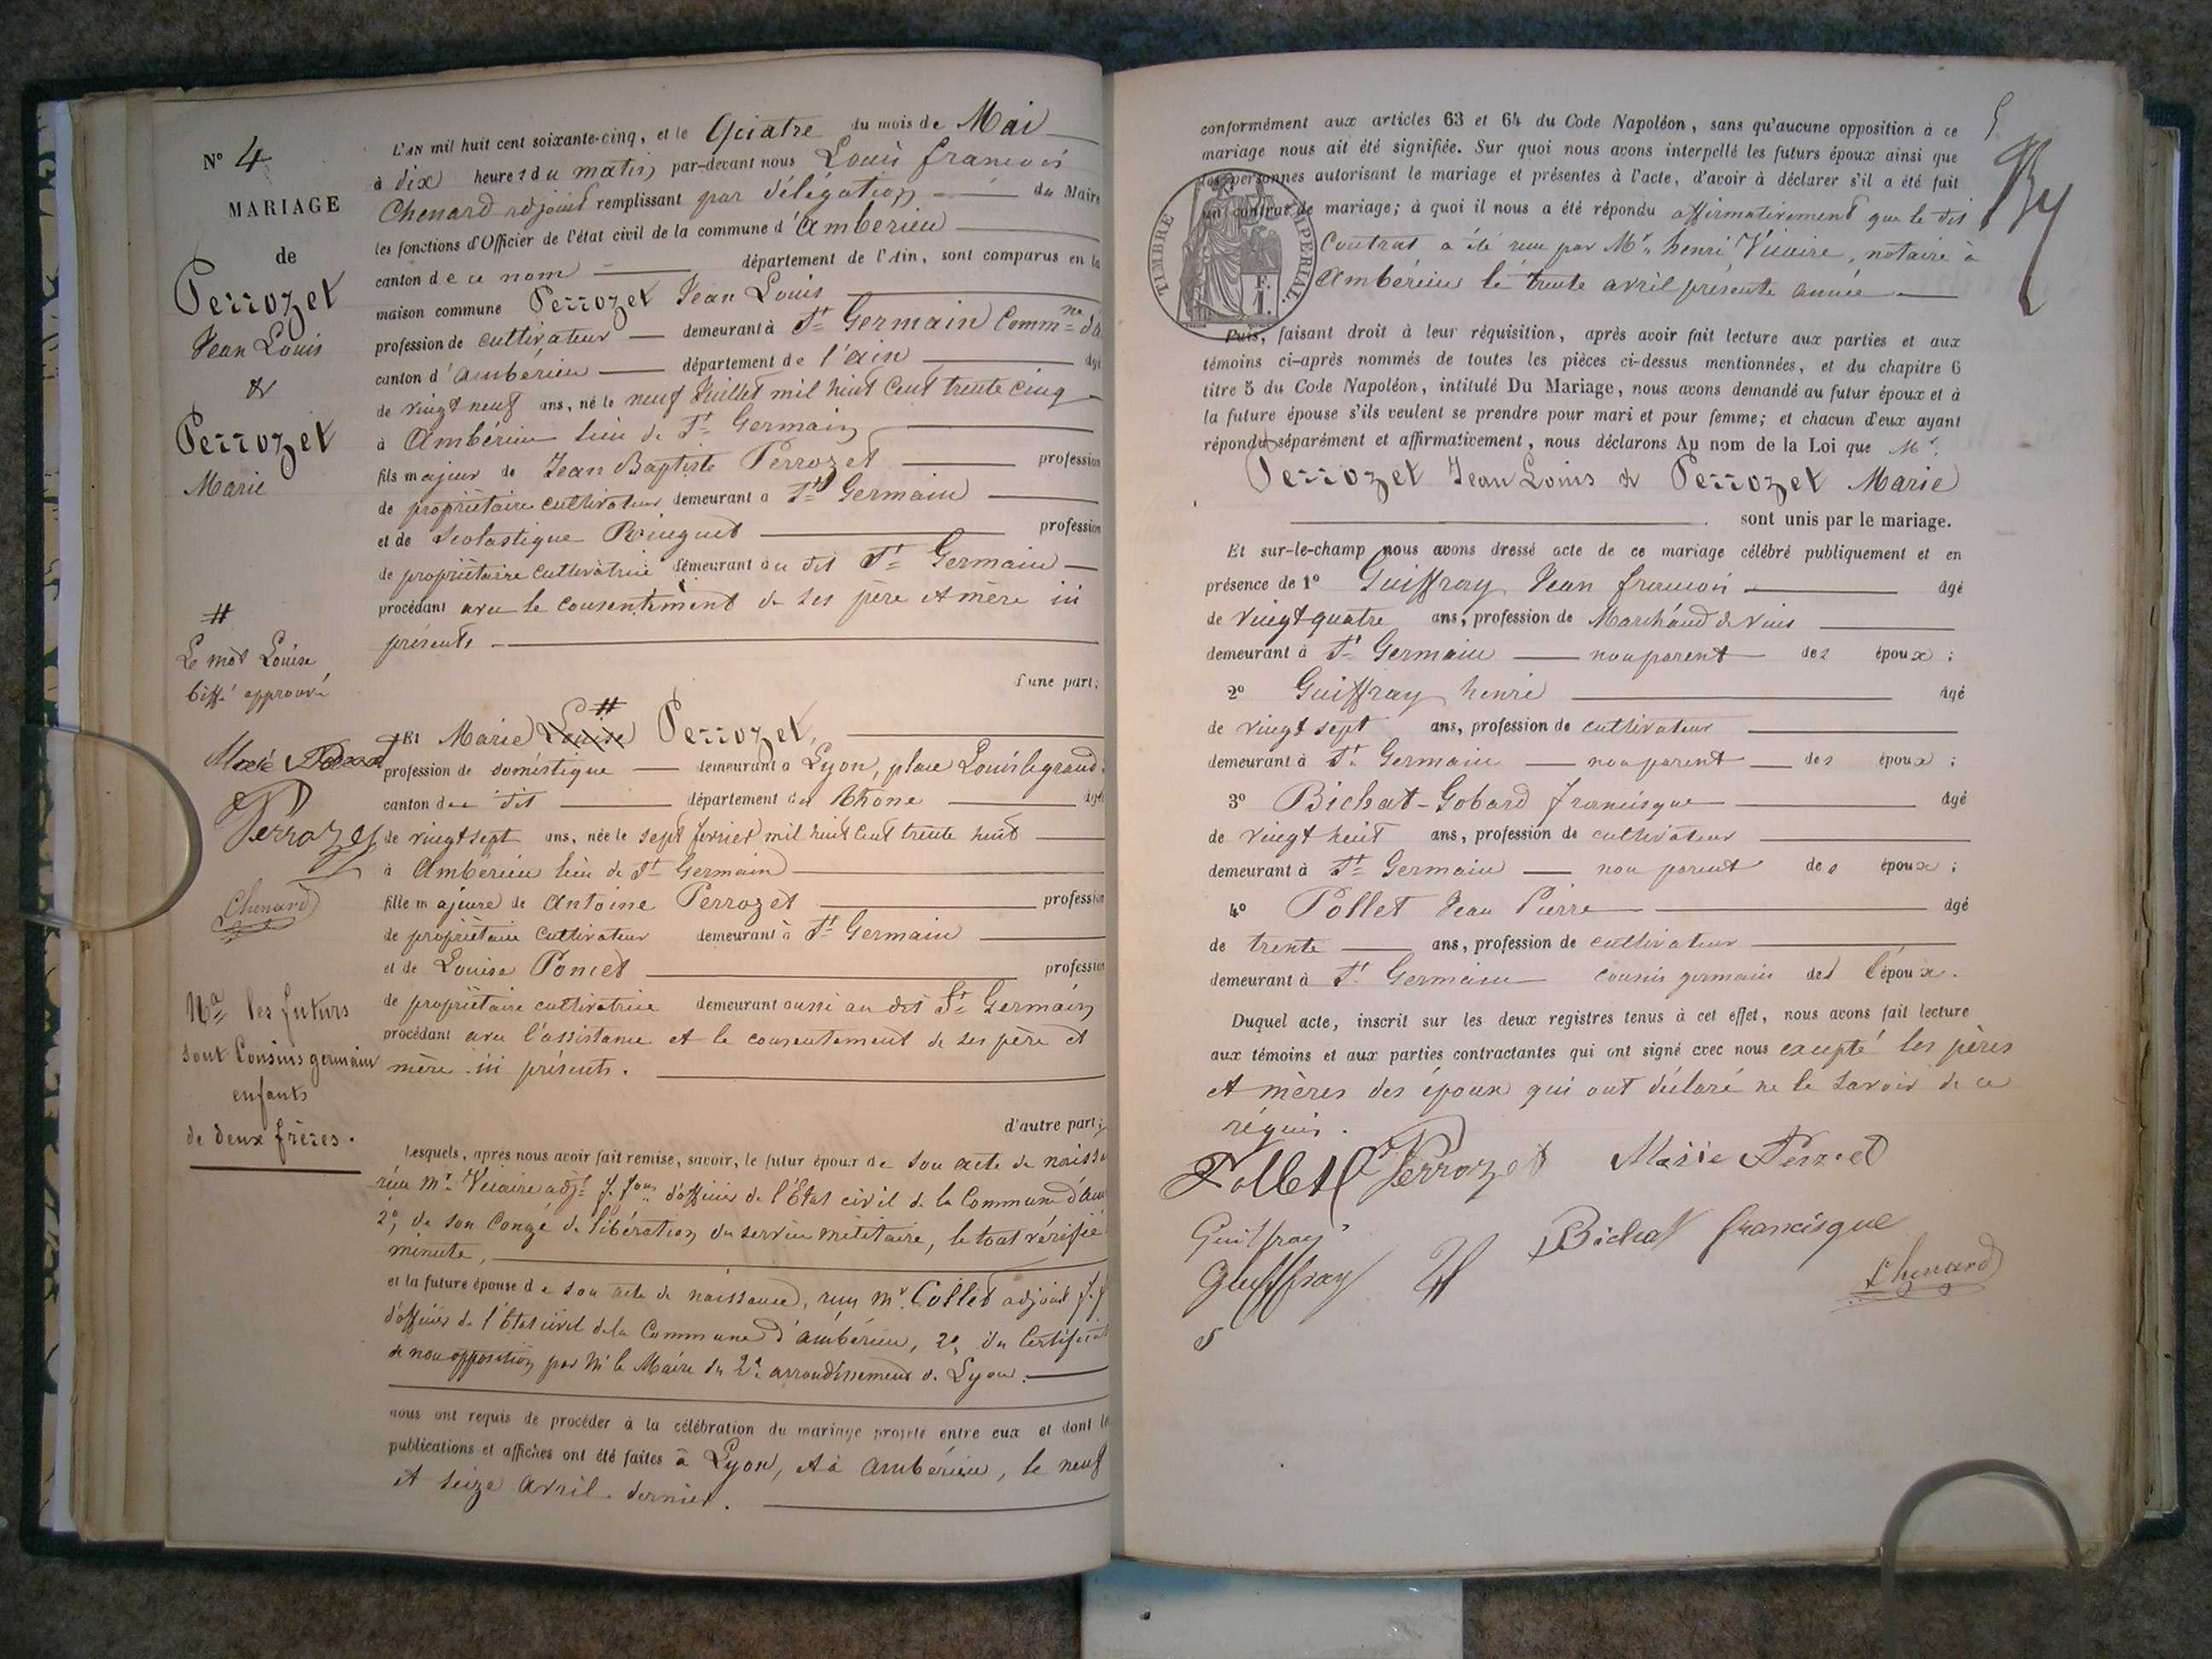 N° 4
MARIAGE
de
Perrozet
Jean Louis
&
Perrozet
Marie
#
Le mot Louise
biffé approuvé
Perrozet
Chenard
Na les futurs
sont Cousins germain
enfants
de deux frères.
L'AN mil huit cent soixante-cinq, et le Quatre du mois de Mai
à dix heures du matin par-devant nous Louis francois
Chenard adjoint remplissant par délégation du Maire
les fonctions d'Officier de l'état civil de la commune d'Ambérieu
canton de ce nom département de l'Ain, sont comparus en la
maison commune Perrozet Jean Louis
profession de cultivateur demeurant à St Germain Commne d'a
canton d'ambérieu département de l'ain âgé
de vingt neuf ans, né le neuf Juillet mil huit Cent trente cinq
à Ambérieu lieu de St Germain
fils majeur de Jean Baptiste Perrozet profession
de propriétaire cultivateur demeurant à St Germain
et de Scolastique Ringuet profession
de propriétaire cultivatrice demeurant au dit St Germain
procédant avec le consentement de ses père et mère ici
présents
d'une part;
Et Marie Louise # Perrozet,
profession de doméstique demeurant à Lyon, place Louis legrand.
canton du dit département du Rhône âgée
de vingt sept ans, née le sept fevrier mil huit cent trente huit
à Ambérieu lieu de St Germain
fille majeure de Antoine Perrozet profession
de propriétaire cultivateur demeurant à St Germain
et de Louise Poncet profession
de propriétaire cultivatrice demeurant aussi au dit St Germain
procédant avec l'assistance et le consentement de ses père et
mère ici présents.
d'autre part;
Lesquels, après nous avoir fait remise, savoir, le futur époux de son acte de naissa
reçu Mr Vicaire adjt f. fons d'officier de l'Etat civil de la Commune d'am
2°, de son Congé de libération du service militaire, le tout vérifié
minute,
et la future épouse de son acte de naissance, reçu Mr Collet adjoint f. f
d'officier de l'État civil de la Commune d'ambérieu, 2°, du Certificat
de non opposition par Mr le Maire du 2e arrondissement de Lyon.
nous ont requis de procéder à la célébration du mariage projeté entre eux et dont les
publications et affiches ont été faites à Lyon, et à ambérieu, le neuf
et seize avril dernier.
5
conformément aux articles 63 et 64 du Code Napoléon, sans qu'aucune opposition à ce
mariage nous ait été signifiée. Sur quoi nous avons interpellé les futurs époux ainsi que
les personnes autorisant le mariage et présentes à l'acte, d'avoir à déclarer s'il a été fait
un contrat de mariage; à quoi il nous a été répondu affirmativement que le dit
Contrat a été reçu par Mr henri Vicaire, notaire à
Ambérieu le trente avril présente année
TIMBRE IMPERIAL.
F.
1.
Puis, faisant droit à leur réquisition, après avoir fait lecture aux parties et aux
témoins ci-après nommés de toutes les pièces ci-dessus mentionnées, et du chapitre 6
titre 5 du Code Napoléon, intitulé Du Mariage, nous avons demandé au futur époux et à
la future épouse s'ils veulent se prendre pour mari et pour femme; et chacun d'eux ayant
répondu séparément et affirmativement, nous déclarons Au nom de la Loi que Mr.
Perrozet Jean Louis & Perrozet Marie
sont unis par le mariage.
Et sur-le-champ nous avons dressé acte de ce mariage célébré publiquement et en
présence de 1° Guiffray Jean francois âgé
de vingt quatre ans, profession de Marchand de vins
demeurant à St Germain non parent des époux;
2° Guiffray henri âgé
de vingt sept ans, profession de cultivateur
demeurant à St Germain non parent des époux;
3° Bichat-Gobard francisque âgé
de vingt huit ans, profession de cultivateur
demeurant à St Germain non parent des époux;
4° Pollet Jean Pierre âgé
de trente ans, profession de cultivateur
demeurant à St Germain cousin germain de l'époux.
Duquel acte, inscrit sur les deux registres tenus à cet effet, nous avons fait lecture
aux témoins et aux parties contractantes qui ont signé avec nous excepté les pères
et mères des époux qui ont déclaré ne le savoir de ce
réquis.
Pollet Perrozet Marie Perrozet
Guiffray Bichat francisque
Guiffray Chenard